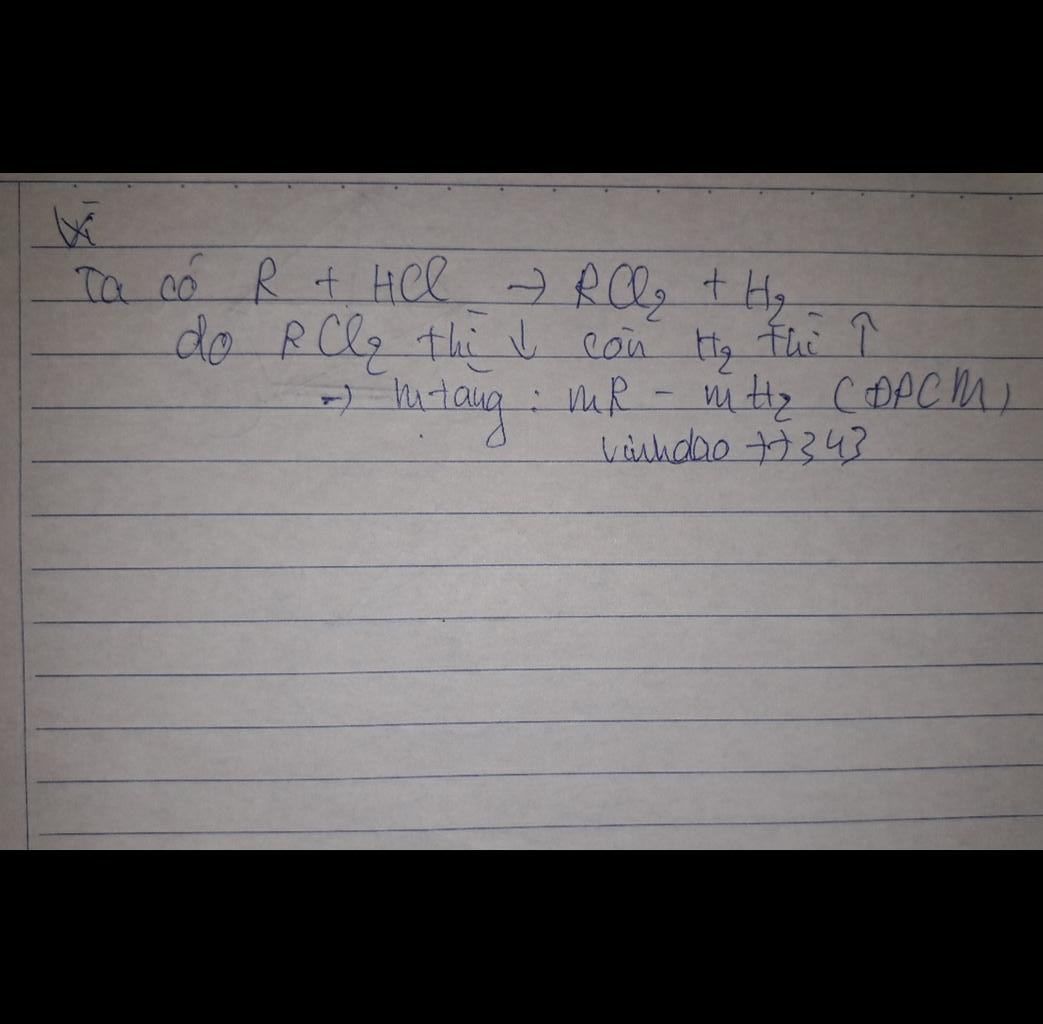 Vì
Ta có R + HCl → RCl₂ + H₂
do RCl₂ thì ↓ còn H₂ thì ↑
→ m tăng : mR - mH₂ (ĐPCM)
vinhdao ++343